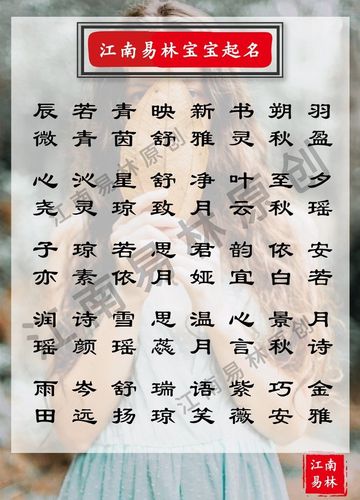 江南易林宝宝起名
辰 若 青 映 新 书 朔 羽
微 青 茵 舒 雅 灵 秋 盈
心 沁 星 舒 净 叶 至 夕
尧 灵 琼 致 月 云 秋 瑶
子 琼 若 思 君 韵 依 安
亦 素 依 月 娅 宜 白 若
润 诗 雪 思 温 心 景 月
瑶 颜 瑶 蕊 月 言 秋 诗
雨 岑 舒 瑞 语 紫 巧 金
田 远 扬 琼 笑 薇 安 雅
江南易林原创
江南易林原创
江南易林原创
江南
易林